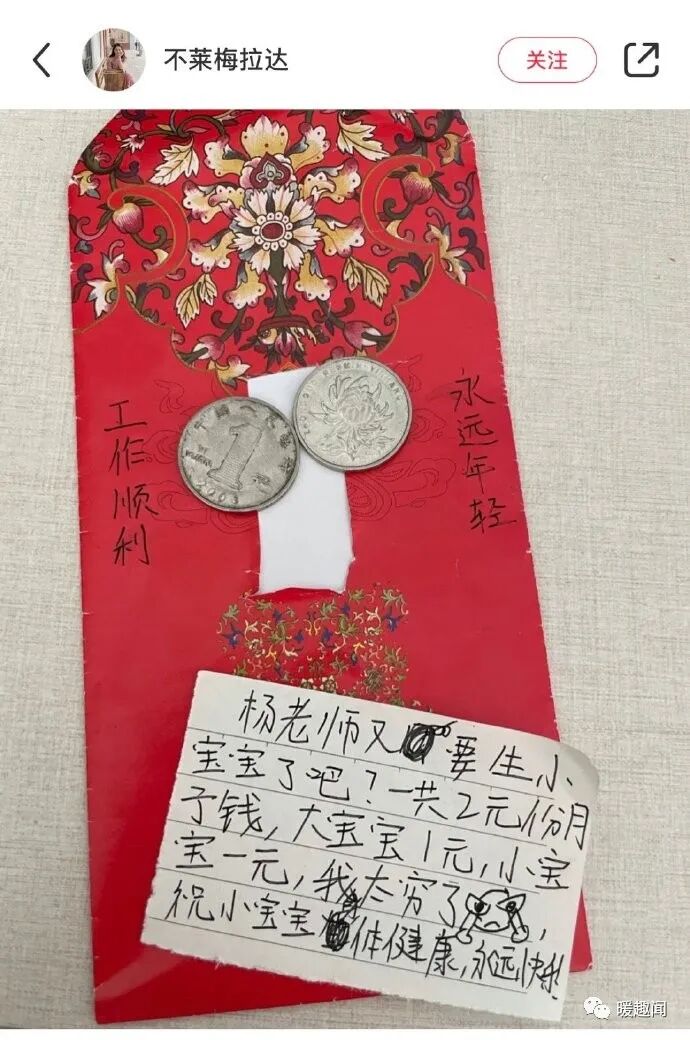 不莱梅拉达
关注
工作顺利
永远年轻
1
杨老师又要生小
宝宝了吧？一共2元份月
子钱，大宝宝1元，小宝
宝一元，我太穷了，
祝小宝宝体健康，永远快乐！
暖趣闻